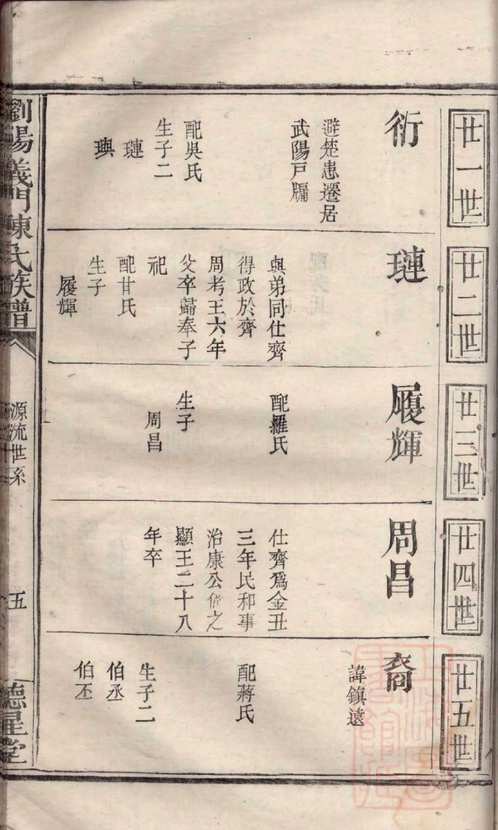 廿一世
衍
避楚患遷居
武陽戸牖
配吳氏
生子二
璉
璵
廿二世
璉
與弟同仕齊
得政於齊
周考王六年
父卒歸奉子
祀
配甘氏
生子
履輝
廿三世
履輝
配羅氏
生子
周昌
廿四世
周昌
仕齊爲金丑
三年民和事
治康公
顯王二十八
年卒
廿五世
裔
諱鎮遠
配蔣氏
生子二
伯丞
伯丕
瀏陽義門陳氏族譜
源流世系
五
德星堂